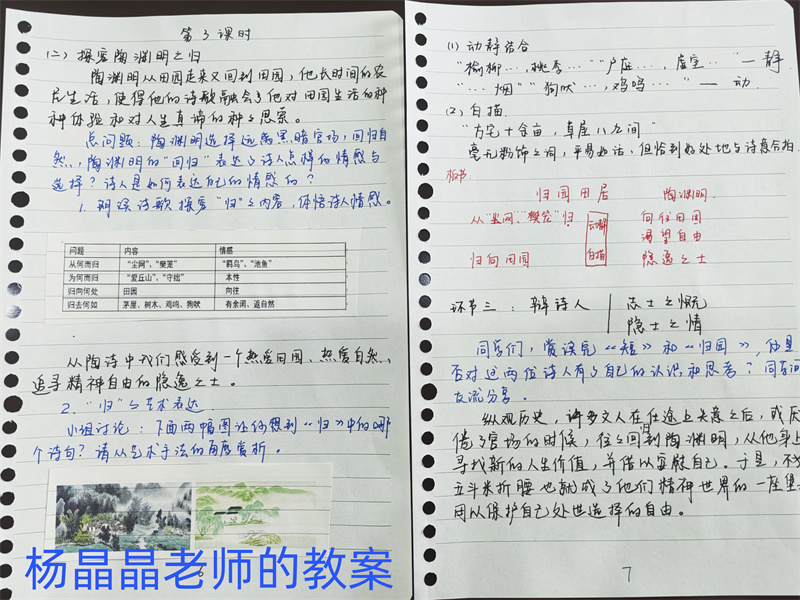 第3课时
(二) 探究陶渊明之归
陶渊明从田园走来又回到田园,他长时间的农
民生活,使得他的诗歌融会了他对田园生活的种
种体验和对人生真谛的种种思索。
总问题:陶渊明选择远离黑暗官场,回归自
然,陶渊明的“回归”表达了诗人怎样的情感与
选择?诗人是如何表达自己的情感的?
1. 研读诗歌 探究“归”之内容,体悟诗人情感。
问题 内容 情感
从何而归 “尘网”、“樊笼” “羁鸟”、“池鱼”
为何而归 “爱丘山”、“守拙” 本性
归向何处 田园 向往
归去何如 茅屋、树木、鸡鸣、狗吠 有余闲、返自然
从陶诗中我们感受到一个热爱田园、热爱自然、
追寻精神自由的隐逸之士。
2. “归”之艺术表达
小组讨论:下面两幅图让你想到《归》中的哪
个诗句?请从艺术手法的角度赏析。
杨晶晶老师的教案
(1) 动静结合
“榆柳…,桃李…”“户庭…,虚室…”—静
“…烟”“狗吠…,鸡鸣…”—动
(2) 白描
“方宅十余亩,草屋八九间”
毫无粉饰之词,平易如话,但恰到好处地与诗意合拍
板书
归园田居 陶渊明
从“尘网”、“樊笼”归 动静 向往田园
渴望自由
归向田园 白描 隐逸之士
环节三:辩诗人 志士之慨
隐士之情
同学们,赏读完《短》和《归园》,
否对这两位诗人有了自己的认识和思考?同学们
交流分享。
纵观历史,许多文人在仕途上失意之后,或厌
倦了官场的时候,往往回到陶渊明,从他身上
寻找新的人生价值,并借以安慰自己。于是,不为
五斗米折腰也就成了他们精神世界的一座堡
用以保护自己处世选择的自由。
7